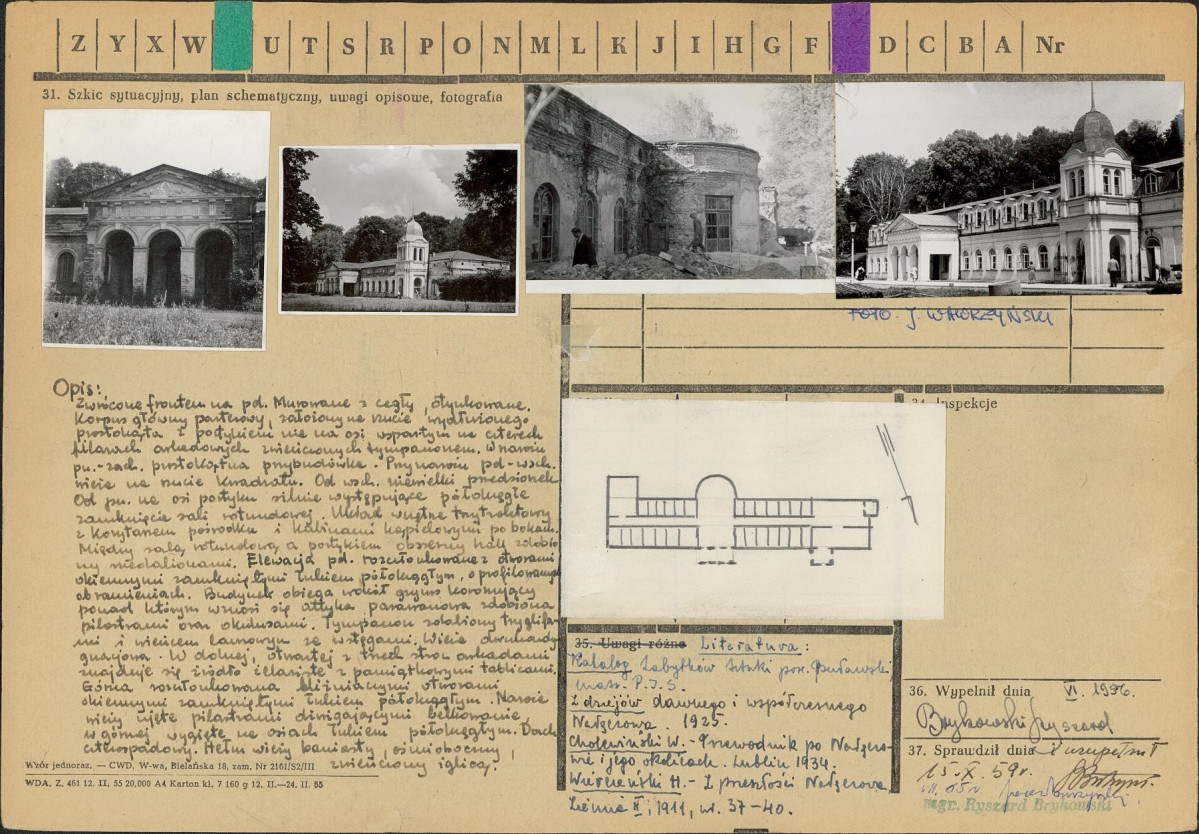 Z Y X W U T S R P O N M L K J I H G F D C B A Nr
31. Szkic sytuacyjny, plan schematyczny, uwagi opisowe, fotografia
FOTO. J. WAWRZYŃSKI
Opis:
Zwrócone frontem na pd. Murowane z cegły, otynkowane.
Korpus główny parterowy, założony na rzucie wydłużonego
prostokąta z portykiem nie na osi wspartym na czterech
filarach arkadowych zwieńczonych tympanonem. W narożu
pn.-zach. prostokątna przybudówka. Przy narożu pd-wsch.
wieża na rzucie kwadratu. Od wsch. niewielki przedsionek
Od pn. na osi portyku silnie występujące półokrągłe
zamknięcie sali rotundowej. Układ wnętrz trzytraktowy
z korytarzem pośrodku i kabinami kąpielowymi po bokach.
Między salą rotundową a portykiem obszerny hall zdobio
ny medalionami. Elewacja pd. rozczłonkowana otworami
okiennymi zamkniętymi łukiem półokrągłym, o profilowanych
obramieniach. Budynek obiega wokół gzyms koronujący
ponad którym wznosi się attyka parawanowa zdobiona
pilastrami oraz okulusami. Tympanon zdobiony tryglifa-
mi i wieńcem laurowym ze wstęgami. Wieża dwukondy
gnacjowa. W dolnej, otwartej z trzech stron arkadami
znajduje się źródło żelaziste z pamiątkowymi tablicami.
Górna rozczłonkowana bliźniaczymi otworami
okiennymi zamkniętymi łukiem półokrągłym. Naroże
wieży ujęte pilastrami dźwigającymi belkowanie
w górnej wygięte na osiach łukiem półokrągłym. Dach
czterospadowy. Hełm wieży baniasty, ośmioboczny,
zwieńczony iglicą.
Wzór jednoraz. — CWD, W-wa, Bielańska 18, zam. Nr 2161/S2/III
WDA. Z. 461 12. II. 55 20,000 A4 Karton kl. 7 160 g 12. II.—24. II. 55
34. Inspekcje
35. Uwagi różne Literatura:
Katalog Zabytków Sztuki pow. Puławski
masz. P.I.S.
Z dziejów dawnego i współczesnego
Nałęczowa. 1925.
Cholewiński W. - Przewodnik po Nałęczo-
wie i jego okolicach. Lublin 1934.
Wiercieński H. - Z przeszłości Nałęczowa
Ziemia II, 1911, nr. 37-40.
36. Wypełnił dnia VI. 1956.
Brykowski Ryszard
37. Sprawdził dnia i uzupełnił
15.X.59r.
mgr. Ryszard Brykowski